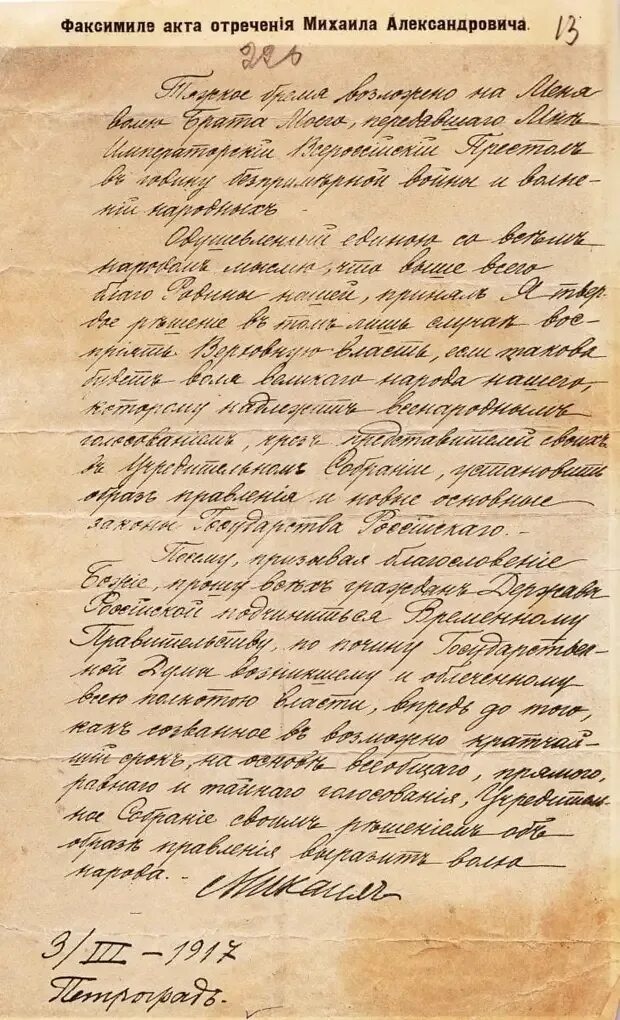 Факсимиле акта отреченія Михаила Александровича.
13
Тяжкое бремя возложено на Меня
волею Брата Моего, передавшаго Мнѣ
Императорскій Всероссійскій Престолъ
въ годину безпримѣрной войны и волне-
ній народныхъ.
Одушевленный единою со всѣмъ
народомъ мыслію, что выше всего
благо Родины нашей, принялъ Я твер-
дое рѣшеніе въ томъ лишь случаѣ вос-
пріять Верховную власть, если такова
будетъ воля великаго народа нашего,
которому надлежитъ всенароднымъ
голосованіемъ, чрезъ представителей своихъ
въ Учредительномъ Собраніи, установить
образъ правленія и новые основные
законы Государства Россійскаго.
Посему, призывая благословеніе
Божіе, прошу всѣхъ гражданъ Державы
Россійской подчиниться Временному
Правительству, по почину Государствен-
ной Думы возникшему и облеченному
всею полнотою власти, впредь до того,
какъ созванное въ возможно кратчай-
шій срокъ, на основѣ всеобщаго, прямого,
равнаго и тайнаго голосованія, Учредитель-
ное Собраніе своимъ рѣшеніемъ объ
образѣ правленія выразитъ волю
народа.
Михаилъ
3/III – 1917
Петроградъ.